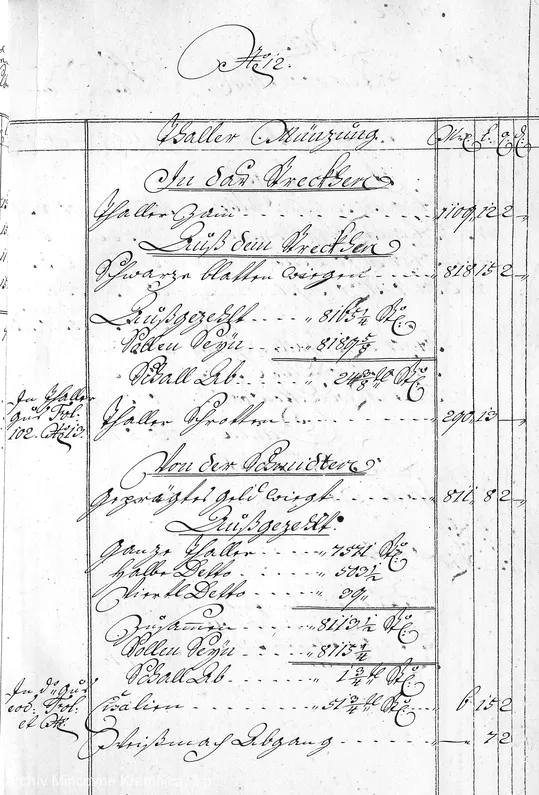 No 12.
Thaller Münzung. Mrk. L. q. d.
In das Streckhen
Thaller Zain 1109 12 2
Auß dem Streckhen
Schwarze blatten wiegen 818 15 2
Außgezehlt 8165 1/4 Stk:
Sollen Seyn 8189 5/8
Schall Ab 24 3/8 Stk:
In Thaller
guß Fol:
102. No 13.
Thaller Schrotten 290 13
Von der Schmidten
Geprägtes geld wiegt 811 8 2
Außgezehlt
Ganze Thaller 7571 Stk:
Halbe Detto 503 1/2
Viertl Detto 39
Zusammen 8113 1/2 Stk:
Sollen Seyn
Schall Ab 1 3/4 Stk:
In d: guß
eod: Fol:
et No
Cisalien 51 3/4 Stk: 6 15 2
Weißmach Abgang 7 2
Archiv Mincovne Kremnica